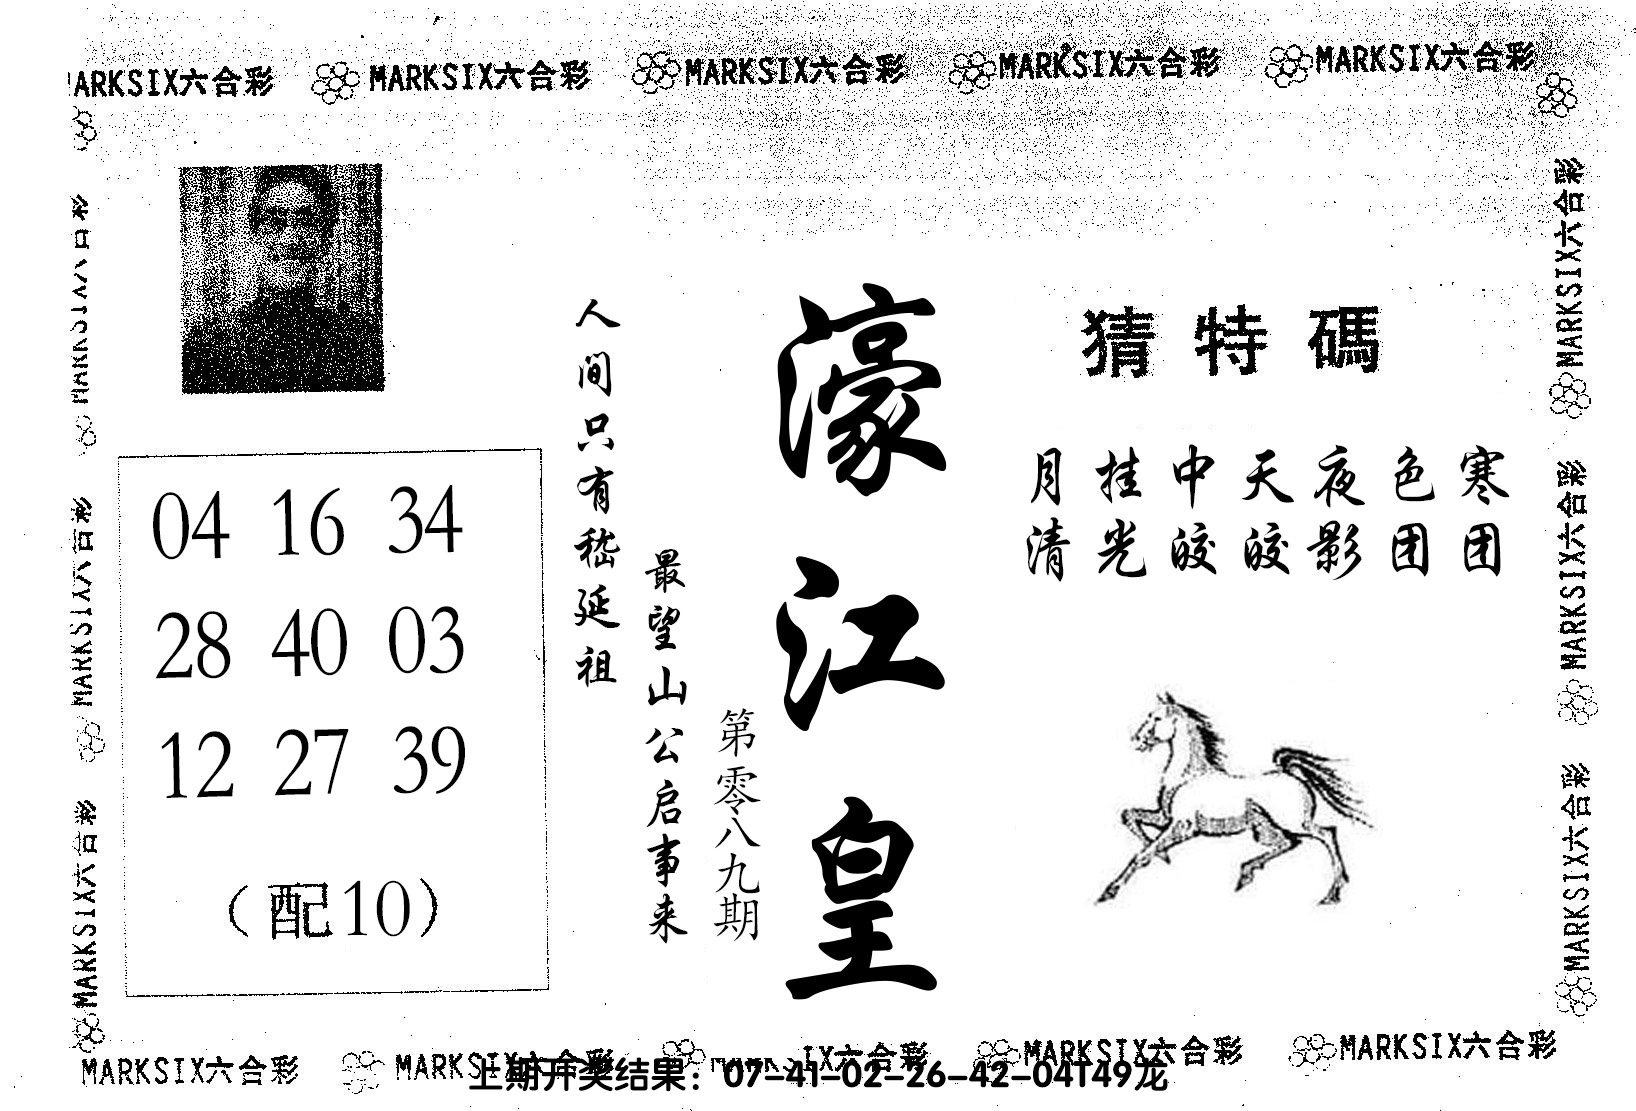 MARKSIX六合彩 MARKSIX六合彩 MARKSIX六合彩 MARKSIX六合彩
MARKSIX六合彩
MARKSIX六合彩
MARKSIX六合彩
MARKSIX六合彩
MARKSIX六合彩
MARKSIX六合彩
猜特碼
月挂中天夜色寒
清光皎皎影团团
濠江皇
第零八九期
最望山公启事来
人间只有嵇延祖
04 16 34
28 40 03
12 27 39
(配10)
MARKSIX六合彩 MARKSIX六合彩 六合彩 MARKSIX六合彩 MARKSIX六合彩
上期开奖结果：07-41-02-26-42-04T49龙